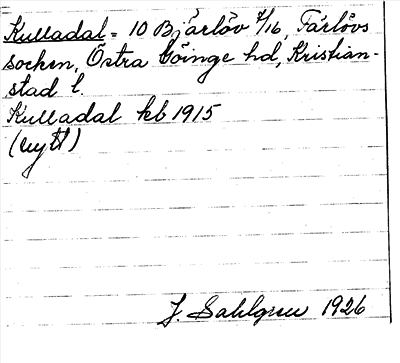 Kulladal = 10 Bjärlöv 4/16, Färlövs
socken, Östra Göinge hd, Kristian-
stad l.
Kulladal kb 1915
(nytt)
J. Sahlgren 1926